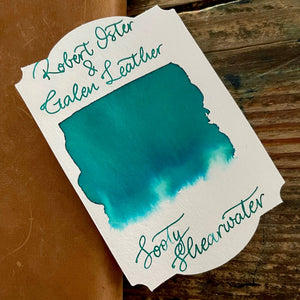 Robert Oster
&
Galen Leather
Sooty
Shearwater